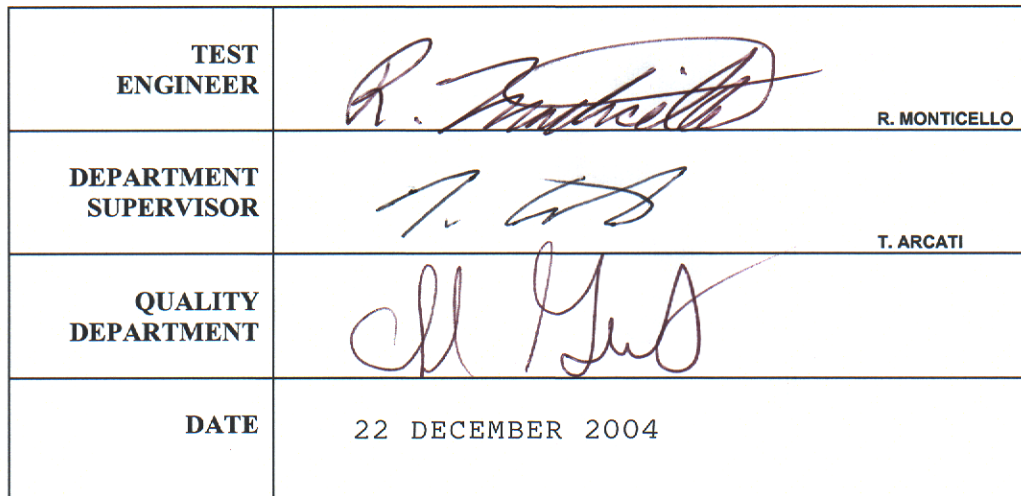 TEST
ENGINEER
R. Monticello
R. MONTICELLO
DEPARTMENT
SUPERVISOR
T. ARCATI
QUALITY
DEPARTMENT
DATE
22 DECEMBER 2004